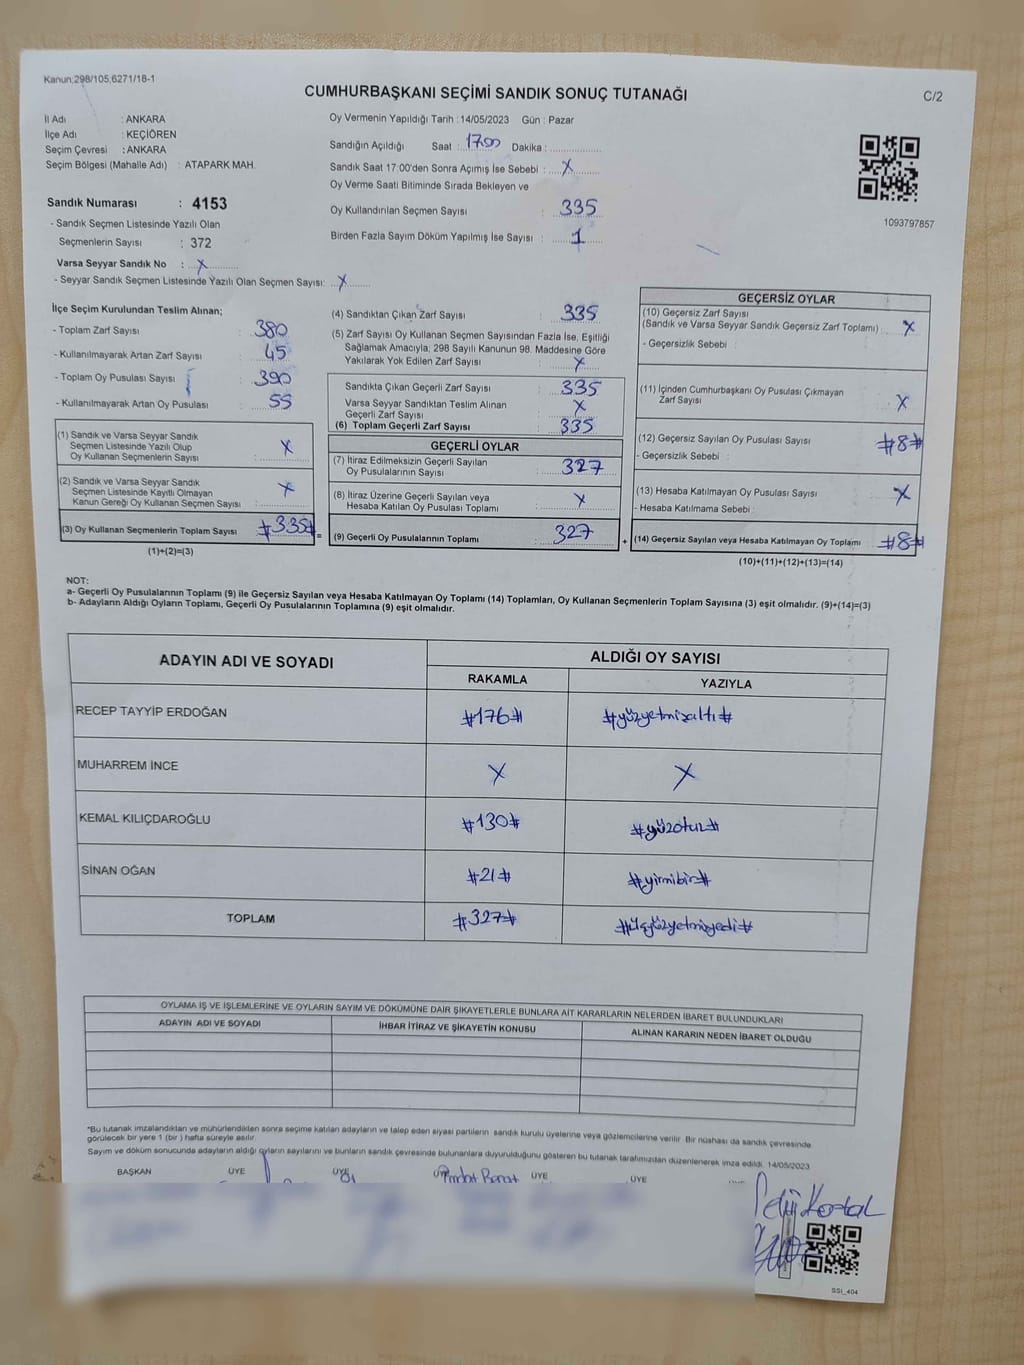 Kanun;298/105,6271/18-1
CUMHURBAŞKANI SEÇİMİ SANDIK SONUÇ TUTANAĞI
C/2
İl Adı : ANKARA
İlçe Adı : KEÇİÖREN
Seçim Çevresi : ANKARA
Seçim Bölgesi (Mahalle Adı) : ATAPARK MAH.
Sandık Numarası : 4153
- Sandık Seçmen Listesinde Yazılı Olan
Seçmenlerin Sayısı : 372
Varsa Seyyar Sandık No : X
- Seyyar Sandık Seçmen Listesinde Yazılı Olan Seçmen Sayısı: X
Oy Vermenin Yapıldığı Tarih : 14/05/2023 Gün : Pazar
Sandığın Açıldığı Saat : 17.00 Dakika :
Sandık Saat 17:00'den Sonra Açımış İse Sebebi : X
Oy Verme Saati Bitiminde Sırada Bekleyen ve
Oy Kullandırılan Seçmen Sayısı : 335
Birden Fazla Sayım Döküm Yapılmış İse Sayısı : 1
1093797857
İlçe Seçim Kurulundan Teslim Alınan;
- Toplam Zarf Sayısı : 380
- Kullanılmayarak Artan Zarf Sayısı : 45
- Toplam Oy Pusulası Sayısı : 390
- Kullanılmayarak Artan Oy Pusulası : 55
(1) Sandık ve Varsa Seyyar Sandık
Seçmen Listesinde Yazılı Olup
Oy Kullanan Seçmenlerin Sayısı : X
(2) Sandık ve Varsa Seyyar Sandık
Seçmen Listesinde Kayıtlı Olmayan
Kanun Gereği Oy Kullanan Seçmen Sayısı : X
(3) Oy Kullanan Seçmenlerin Toplam Sayısı #335# =
(1)+(2)=(3)
(4) Sandıktan Çıkan Zarf Sayısı : 335
(5) Zarf Sayısı Oy Kullanan Seçmen Sayısından Fazla İse, Eşitliği
Sağlamak Amacıyla; 298 Sayılı Kanunun 98. Maddesine Göre
Yakılarak Yok Edilen Zarf Sayısı : X
Sandıkta Çıkan Geçerli Zarf Sayısı : 335
Varsa Seyyar Sandıktan Teslim Alınan
Geçerli Zarf Sayısı : X
(6) Toplam Geçerli Zarf Sayısı : 335
GEÇERLİ OYLAR
(7) İtiraz Edilmeksizin Geçerli Sayılan
Oy Pusulalarının Sayısı : 327
(8) İtiraz Üzerine Geçerli Sayılan veya
Hesaba Katılan Oy Pusulası Toplamı : X
(9) Geçerli Oy Pusulalarının Toplamı : 327 +
GEÇERSİZ OYLAR
(10) Geçersiz Zarf Sayısı
(Sandık ve Varsa Seyyar Sandık Geçersiz Zarf Toplamı) : X
- Geçersizlik Sebebi :
(11) İçinden Cumhurbaşkanı Oy Pusulası Çıkmayan
Zarf Sayısı : X
(12) Geçersiz Sayılan Oy Pusulası Sayısı : #8#
- Geçersizlik Sebebi :
(13) Hesaba Katılmayan Oy Pusulası Sayısı : X
- Hesaba Katılmama Sebebi :
(14) Geçersiz Sayılan veya Hesaba Katılmayan Oy Toplamı : #8#
(10)+(11)+(12)+(13)=(14)
NOT:
a- Geçerli Oy Pusulalarının Toplamı (9) ile Geçersiz Sayılan veya Hesaba Katılmayan Oy Toplamı (14) Toplamları, Oy Kullanan Seçmenlerin Toplam Sayısına (3) eşit olmalıdır. (9)+(14)=(3)
b- Adayların Aldığı Oyların Toplamı, Geçerli Oy Pusulalarının Toplamına (9) eşit olmalıdır.
ADAYIN ADI VE SOYADI
ALDIĞI OY SAYISI
RAKAMLA YAZIYLA
RECEP TAYYİP ERDOĞAN #176# #yüzyetmişaltı#
MUHARREM İNCE X X
KEMAL KILIÇDAROĞLU #130# #yüzotuz#
SİNAN OĞAN #21# #yirmibir#
TOPLAM #327# #üçyüzyetmiyedi#
OYLAMA İŞ VE İŞLEMLERİNE VE OYLARIN SAYIM VE DÖKÜMÜNE DAİR ŞİKAYETLERLE BUNLARA AİT KARARLARIN NELERDEN İBARET BULUNDUKLARI
ADAYIN ADI VE SOYADI İHBAR İTİRAZ VE ŞİKAYETİN KONUSU ALINAN KARARIN NEDEN İBARET OLDUĞU
*Bu tutanak imzalandıktan ve mühürlendikten sonra seçime katılan adayların ve talep eden siyasi partilerin sandık kurulu üyelerine veya gözlemcilerine verilir. Bir nüshası da sandık çevresinde
görülecek bir yere 1 (bir ) hafta süreyle asılır.
Sayım ve döküm sonucunda adayların aldığı oyların sayılarını ve bunların sandık çevresinde bulunanlara duyurulduğunu gösteren bu tutanak tarafımızdan düzenlenerek imza edildi. 14/05/2023
BAŞKAN ÜYE ÜYE ÜYE ÜYE ÜYE
SSI_404